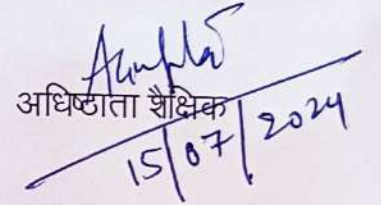 अधिष्ठाता शैक्षिक
15/07/2024